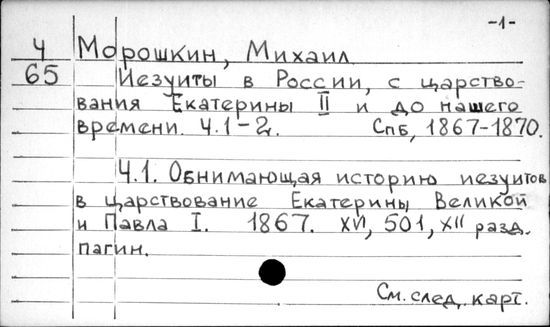 -1-
Ч Морошкин, Михаил
65 Иезуиты в России, с царство-
вания Екатерины II и до нашего
времени. Ч.1-2. Спб, 1867-1870.
Ч.1. Обнимающая историю иезуитов
в царствование Екатерины Великой
и Павла I. 1867. XVI, 501, XII разд.
пагин.
См. след. карт.